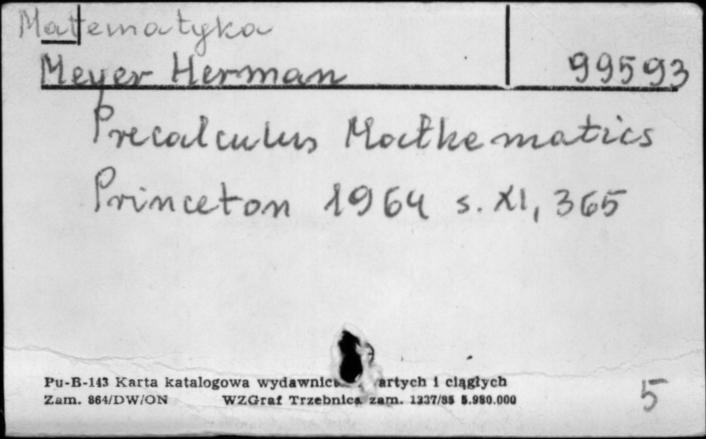 Matematyka
Meyer Herman 99593
Precalculus Mathematics
Princeton 1964 s. XI, 365
Pu-B-143 Karta katalogowa wydawnic artych i ciągłych
Zam. 864/DW/ON WZGraf Trzebnica zam. 1337/85 5.980.000
5